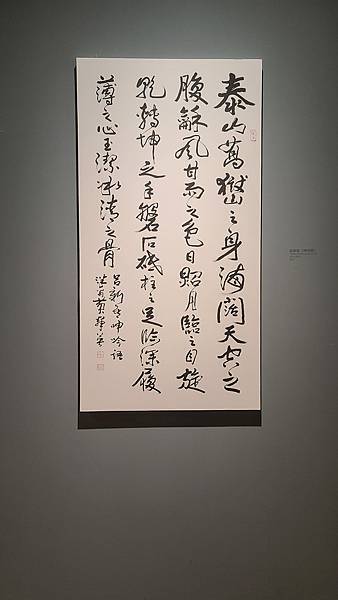 泰山喬嶽之身海闊天空之
腹龢風甘雨之色日照月臨之目旋
乾轉坤之手磐石砥柱之足臨深履
薄之心玉潔冰清之骨
呂新吾呻吟語